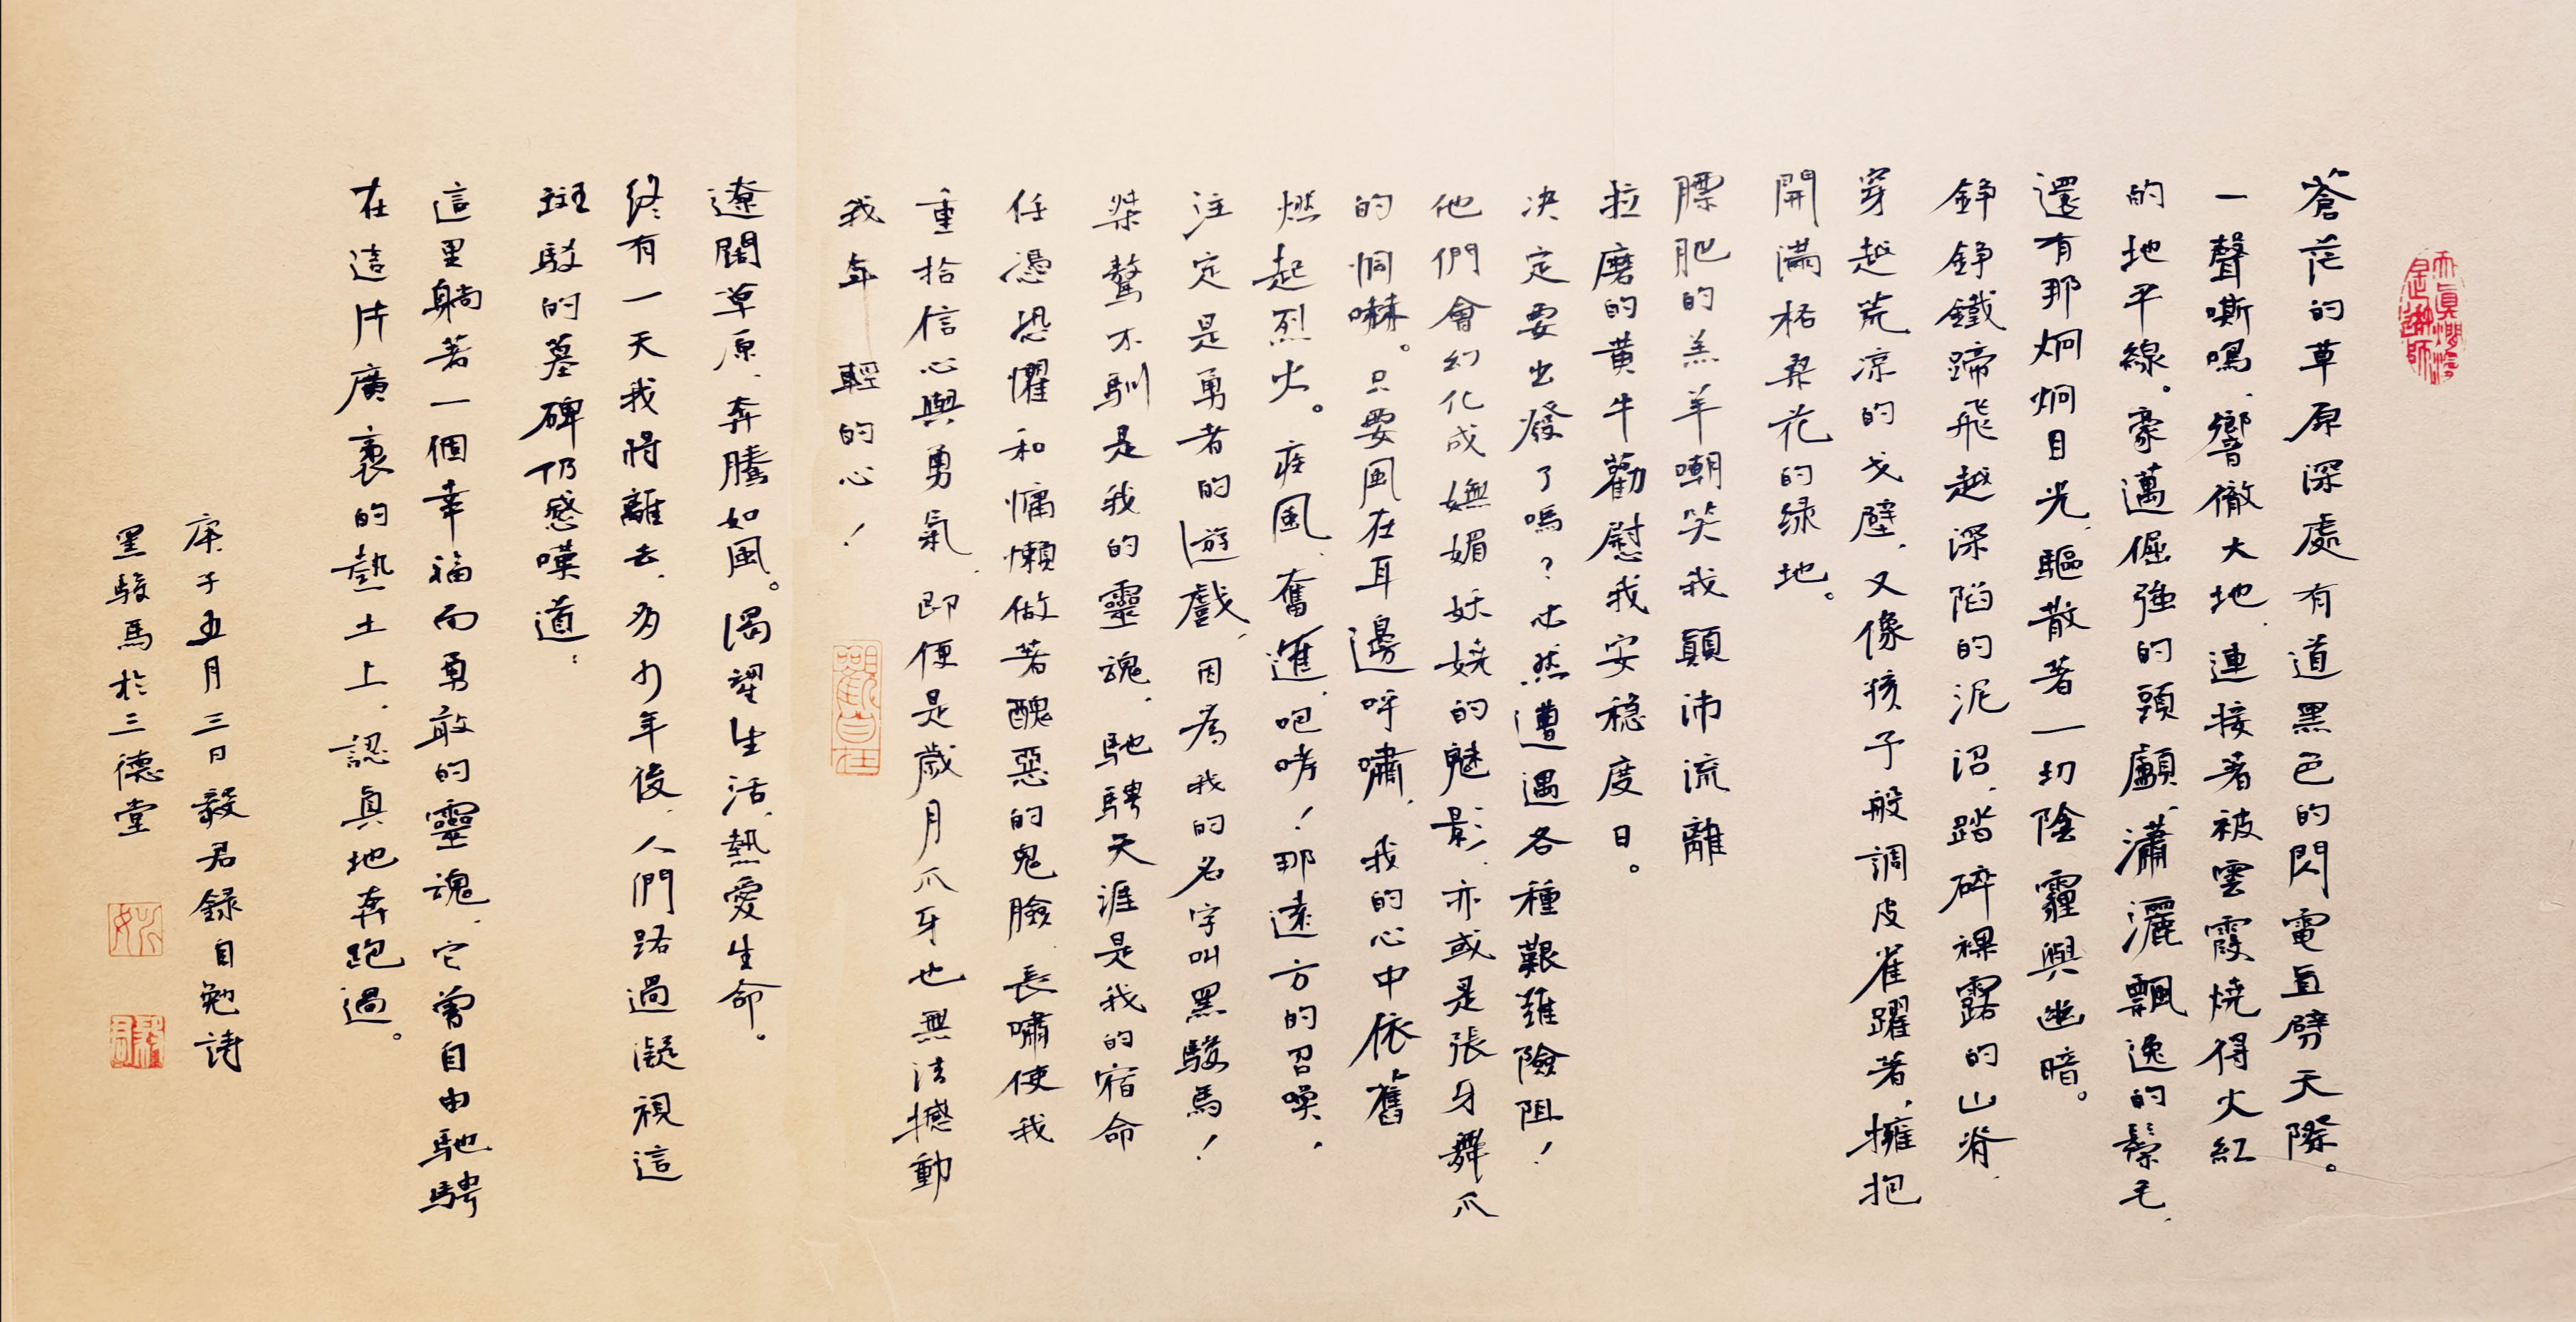 蒼茫的草原深處有道黑色的閃電直劈天際。
一聲嘶鳴、響徹大地、連接著被雲霞燒得火紅
的地平線。豪邁倔強的頭顱、瀟灑飄逸的鬃毛、
還有那炯炯目光、驅散著一切陰霾與幽暗。
錚錚鐵蹄飛越深陷的泥沼、踏碎裸露的山脊、
穿越荒涼的戈壁、又像孩子般調皮雀躍著、擁抱
開滿格桑花的绿地。
膘肥的羔羊嘲笑我顛沛流離
拉磨的黄牛勸慰我安稳度日。
决定要出發了嗎？必然遭遇各種艱難險阻！
他們會幻化成嫵媚妖嬈的魅影、亦或是張牙舞爪
的恫嚇。只要風在耳邊呼嘯、我的心中依舊
燃起烈火。疾風、奮進、咆哮！那遠方的召喚、
注定是勇者的遊戲、因為我的名字叫黑駿馬！
桀驁不馴是我的靈魂、馳騁天涯是我的宿命
任憑恐懼和慵懶做著醜惡的鬼臉、長嘯使我
重拾信心與勇氣、即便是歲月爪牙也無法撼動
我年輕的心！
遼闊草原、奔騰如風。渴望生活、熱愛生命。
終有一天我將離去、多少年後、人們路過凝視這
斑駁的墓碑仍感嘆道：
這里躺著一個幸福而勇敢的靈魂、它曾自由馳騁
在這片廣袤的熱土上、認真地奔跑過。
庚子五月三日毅君録自勉詩
黑駿馬於三德堂
觀自在